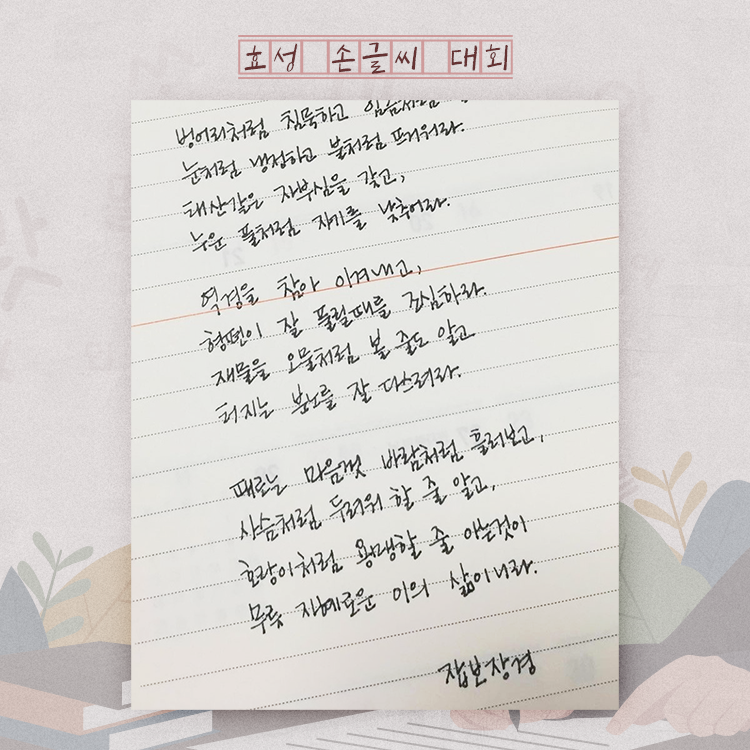 효성 손글씨 대회
벙어리처럼 침묵하고 임금처럼
눈처럼 냉정하고 불처럼 뜨거워라.
태산같은 자부심을 갖고,
누운 풀처럼 자기를 낮추어라.
역경을 참아 이겨내고,
형편이 잘 풀릴때를 조심하라.
재물을 오물처럼 볼 줄도 알고
터지는 분노를 잘 다스려라.
때로는 마음껏 바람처럼 흘려보고,
사슴처럼 두려워 할 줄 알고,
호랑이처럼 용맹할 줄 아는것이
무릇 지혜로운 이의 삶이니라.
잡보장경